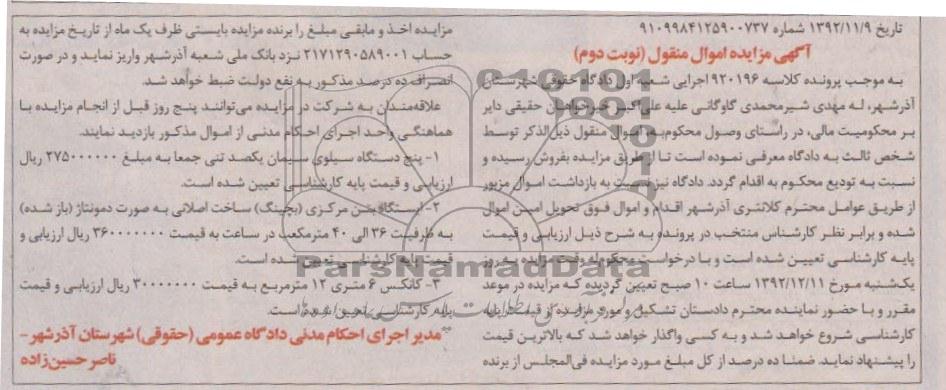 تاریخ ۱۳۹۲/۱۱/۹ شماره ۹۱۰۹۹۸۴۱۲۵۹۰۰۷۳۷
آگهی مزایده اموال منقول (نوبت دوم)
به موجب پرونده کلاسه ۹۲۰۱۹۶ اجرایی شعبه اول دادگاه حقوقی شهرستان
آذرشهر، له مهدی شیرمحمدی گاوگانی علیه علی‌اکبر خیرخواهان حقیقی دایر
بر محکومیت مالی، در راستای وصول محکوم‌به، اموال منقول ذیل‌الذکر توسط
شخص ثالث به دادگاه معرفی نموده است تا از طریق مزایده بفروش رسیده و
نسبت به تودیع محکوم به اقدام گردد. دادگاه نیز نسبت به بازداشت اموال مزبور
از طریق عوامل محترم کلانتری آذرشهر اقدام و اموال فوق تحویل امین اموال
شده و برابر نظر کارشناس منتخب در پرونده به شرح ذیل ارزیابی و قیمت
پایه کارشناسی تعیین شده است و با درخواست محکوم‌له وقت مزایده به روز
یک‌شنبه مورخ ۱۳۹۲/۱۲/۱۱ ساعت ۱۰ صبح تعیین گردیده که مزایده در موعد
مقرر و با حضور نماینده محترم دادستان تشکیل و مورد مزایده از قیمت پایه
کارشناسی شروع خواهد شد و به کسی واگذار خواهد شد که بالاترین قیمت
را پیشنهاد نماید. ضمنا ده درصد از کل مبلغ مورد مزایده فی‌المجلس از برنده
مزایده اخذ و مابقی مبلغ را برنده مزایده بایستی ظرف یک ماه از تاریخ مزایده به
حساب ۲۱۷۱۲۹۰۵۸۹۰۰۱ نزد بانک ملی شعبه آذرشهر واریز نماید و در صورت
انصراف ده درصد مذکور به نفع دولت ضبط خواهد شد.
علاقه‌مندان به شرکت در مزایده می‌توانند پنج روز قبل از انجام مزایده با
هماهنگی واحد اجرای احکام مدنی از اموال مذکور بازدید نمایند.
۱- پنج دستگاه سیلوی سیمان یکصد تنی جمعا به مبلغ ۲۷۵۰۰۰۰۰۰ ریال
ارزیابی و قیمت پایه کارشناسی تعیین شده است.
۲- ایستگاه بتن مرکزی (بچینگ) ساخت اصلانی به صورت دمونتاژ (باز شده)
به ظرفیت ۳۶ الی ۴۰ مترمکعب در ساعت به قیمت ۳۶۰۰۰۰۰۰۰ ریال ارزیابی و
قیمت پایه کارشناسی تعیین شده است.
۳- کانکس ۶ متری ۱۲ مترمربع به قیمت ۳۰۰۰۰۰۰۰ ریال ارزیابی و قیمت
پایه کارشناسی تعیین شده است.
مدیر اجرای احکام مدنی دادگاه عمومی (حقوقی) شهرستان آذرشهر -
ناصر حسین‌زاده
ParsNamadData